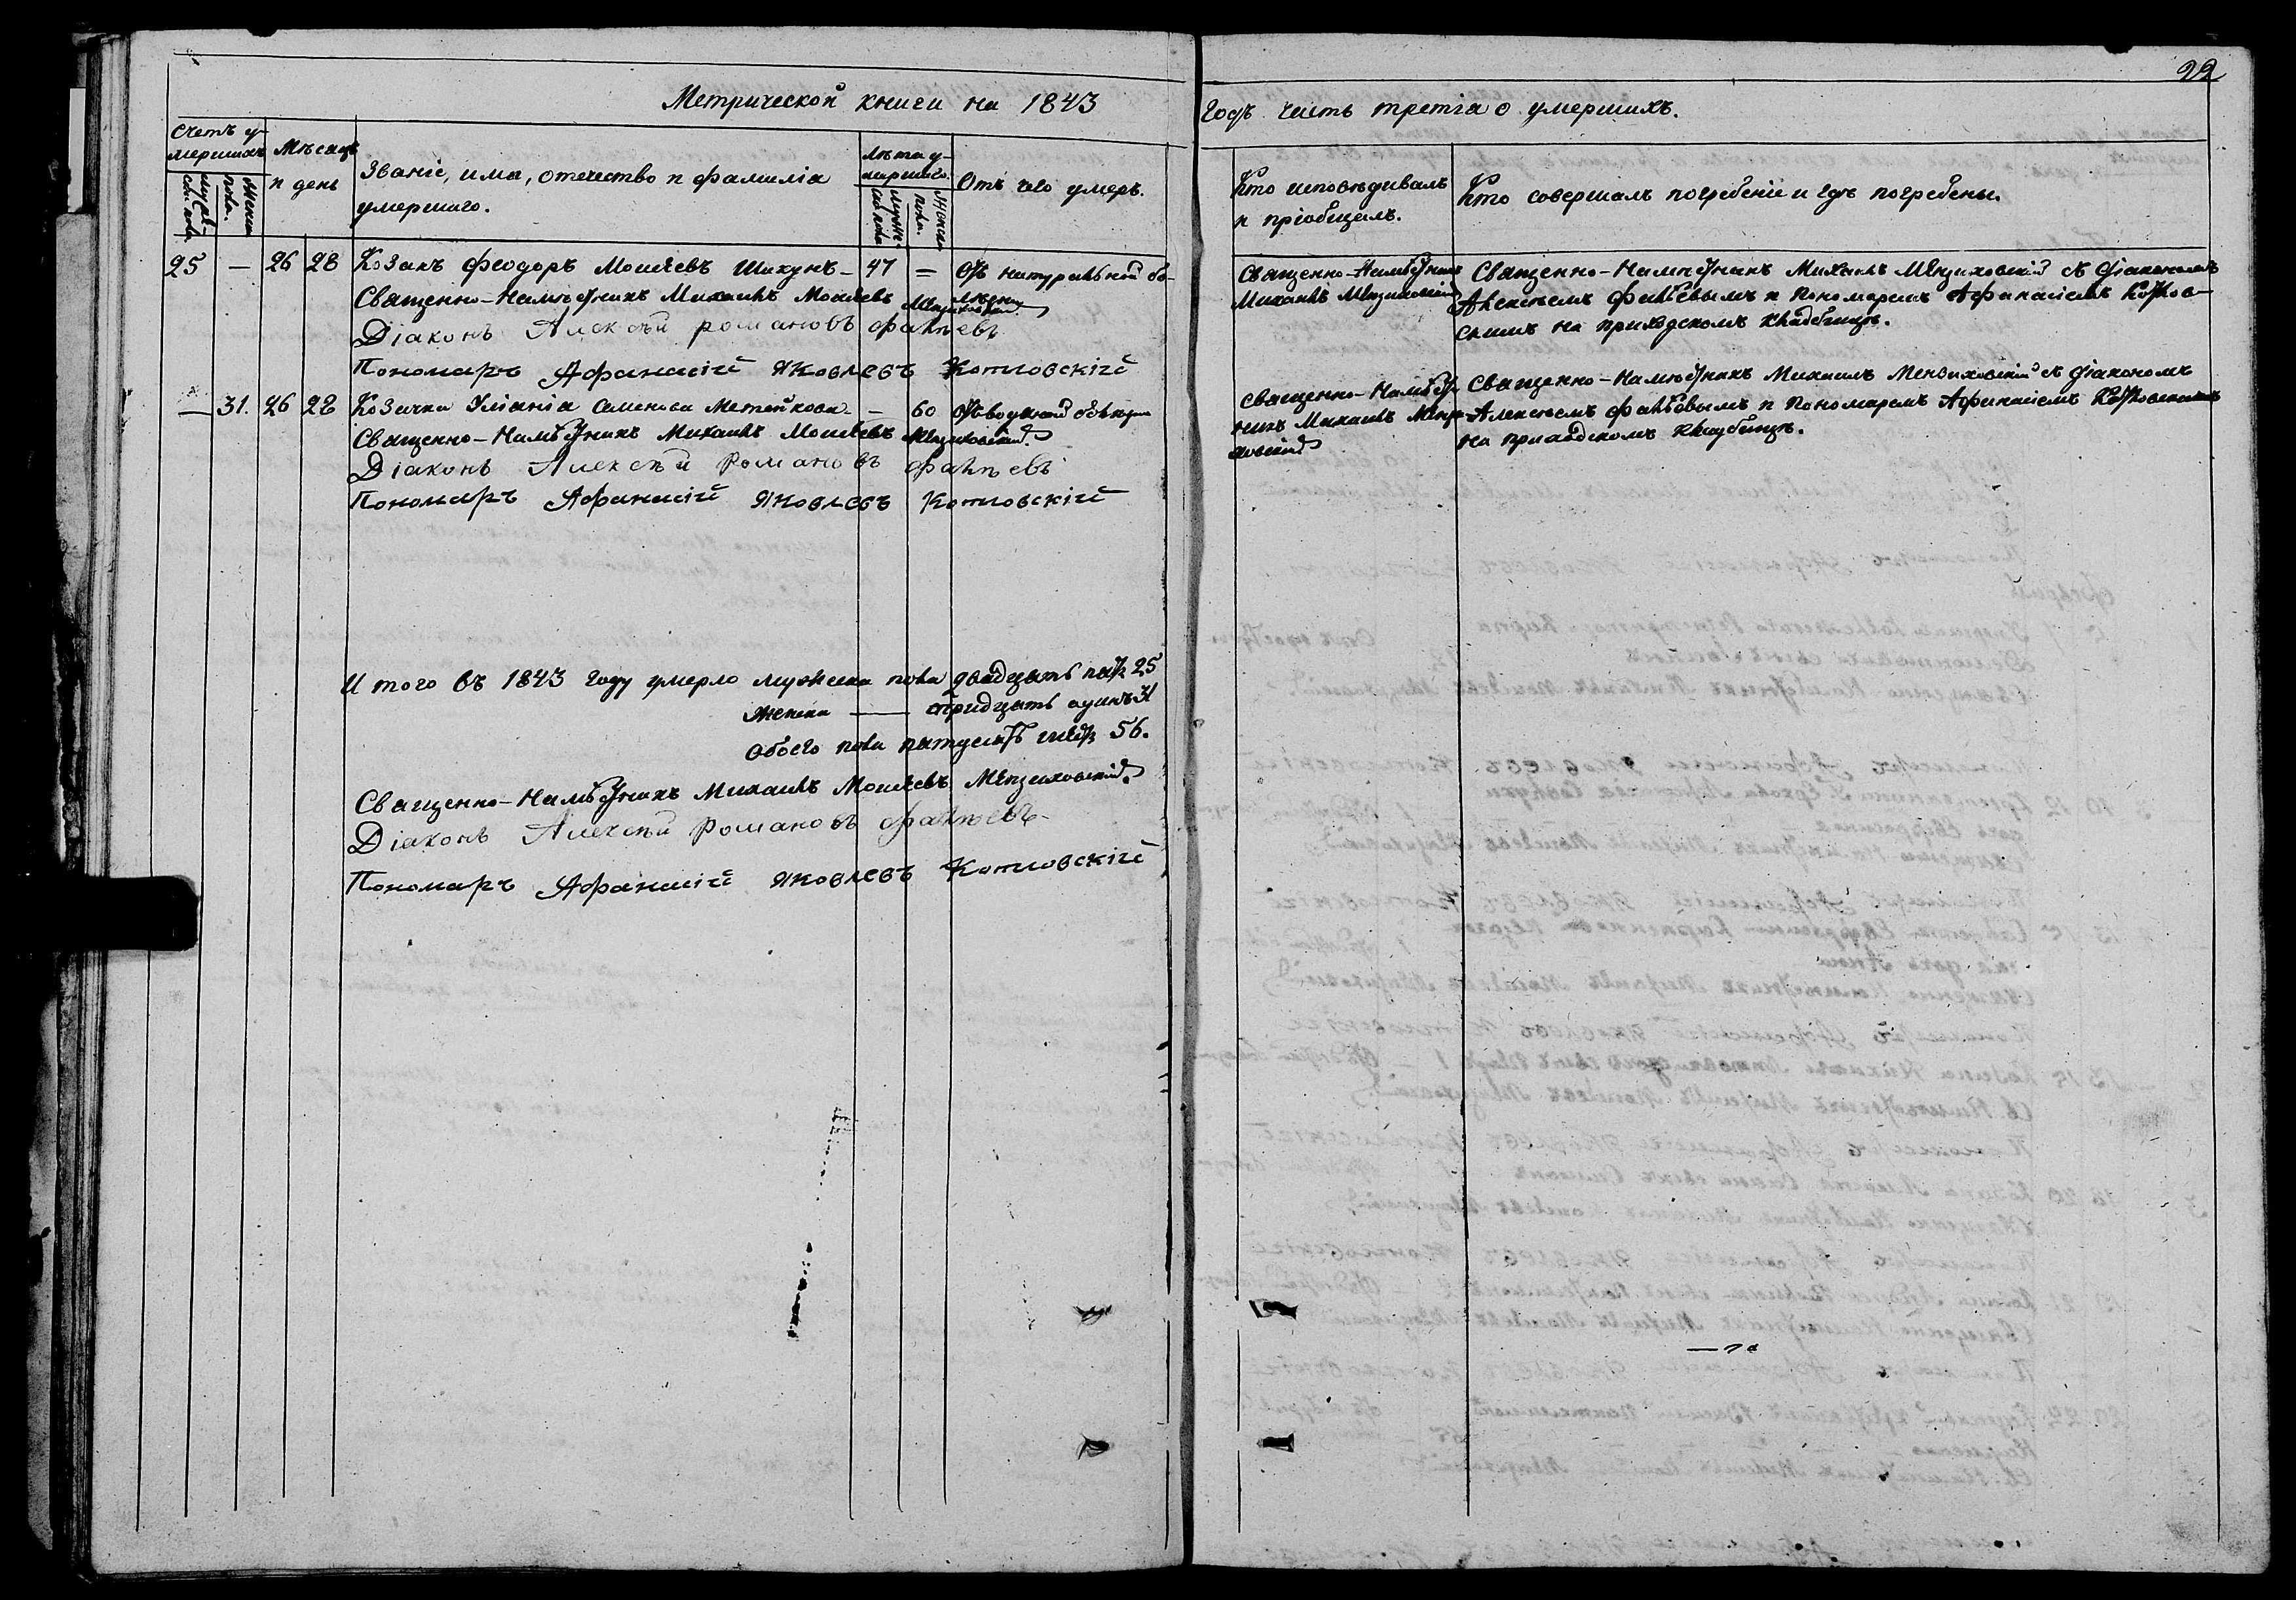 22
Метрической книги на 1843
Годъ часть третіа о умершихъ.
Счетъ у-
мершихъ
Мужес-
каго пола.
Женска
пола.
Мѣсяцъ
и день
Званіе, има, отечество и фамиліа
умершаго.
Лѣта у-
мершаго.
Мужес-
каго пола
Женска
пола.
Отъ чего умеръ.
Кто исповѣдивалъ
и пріобщалъ.
Кто совершалъ погребеніе и гдѣ погребены.
25 — 26 28 Козакъ Феодоръ Моисѣевъ — 47 — Отъ натуральной бо-
лѣзни
Священно-Намѣстникъ Михаилъ Моисѣевъ Мензиховскій
Діаконъ Алексѣй Романовъ
Пономаръ Афанасій Яковлевъ Котловскій
Священно-Намѣстникъ
Михаилъ Мензиховскій
Священно-Намѣстникъ Михаилъ Мензиховскій съ Діакономъ
Алексѣемъ и Пономаремъ Афанасіемъ Котлов-
скимъ на приходскомъ кладбищѣ.
— 31. 26 28 Козачка Уліаніа Семенова — 60 Отъ водяной
Священно-Намѣстникъ Михаилъ Моисѣевъ Мензиховскій
Діаконъ Алексѣй Романовъ
Пономаръ Афанасій Яковлевъ Котловскій
Священно-Намѣст-
никъ Михаилъ Мензи-
ховскій
Священно-Намѣстникъ Михаилъ Мензиховскій съ Діакономъ
Алексѣемъ и Пономаремъ Афанасіемъ Котловскимъ
на приходскомъ кладбищѣ.
Итого въ 1843 году умерло мужеска пола двадцать пять 25
женска — тридцать одинъ 31
обоего пола пятдесятъ шесть 56.
Священно-Намѣстникъ Михаилъ Моисѣевъ Мензиховскій
Діаконъ Алексѣй Романовъ
Пономаръ Афанасій Яковлевъ Котловскій